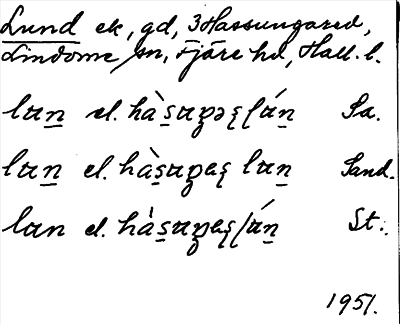 Lund ek, gd, 3 Hassungared,
Lindome sn, Fjäre hd, Hall. l.
lɑn el. hàsɑpəs lɑ́n Sa.
lɑn el. hàsɑpas lɑn Sand.
lɑn el. hàsɑpas lɑ́n St.
1951.